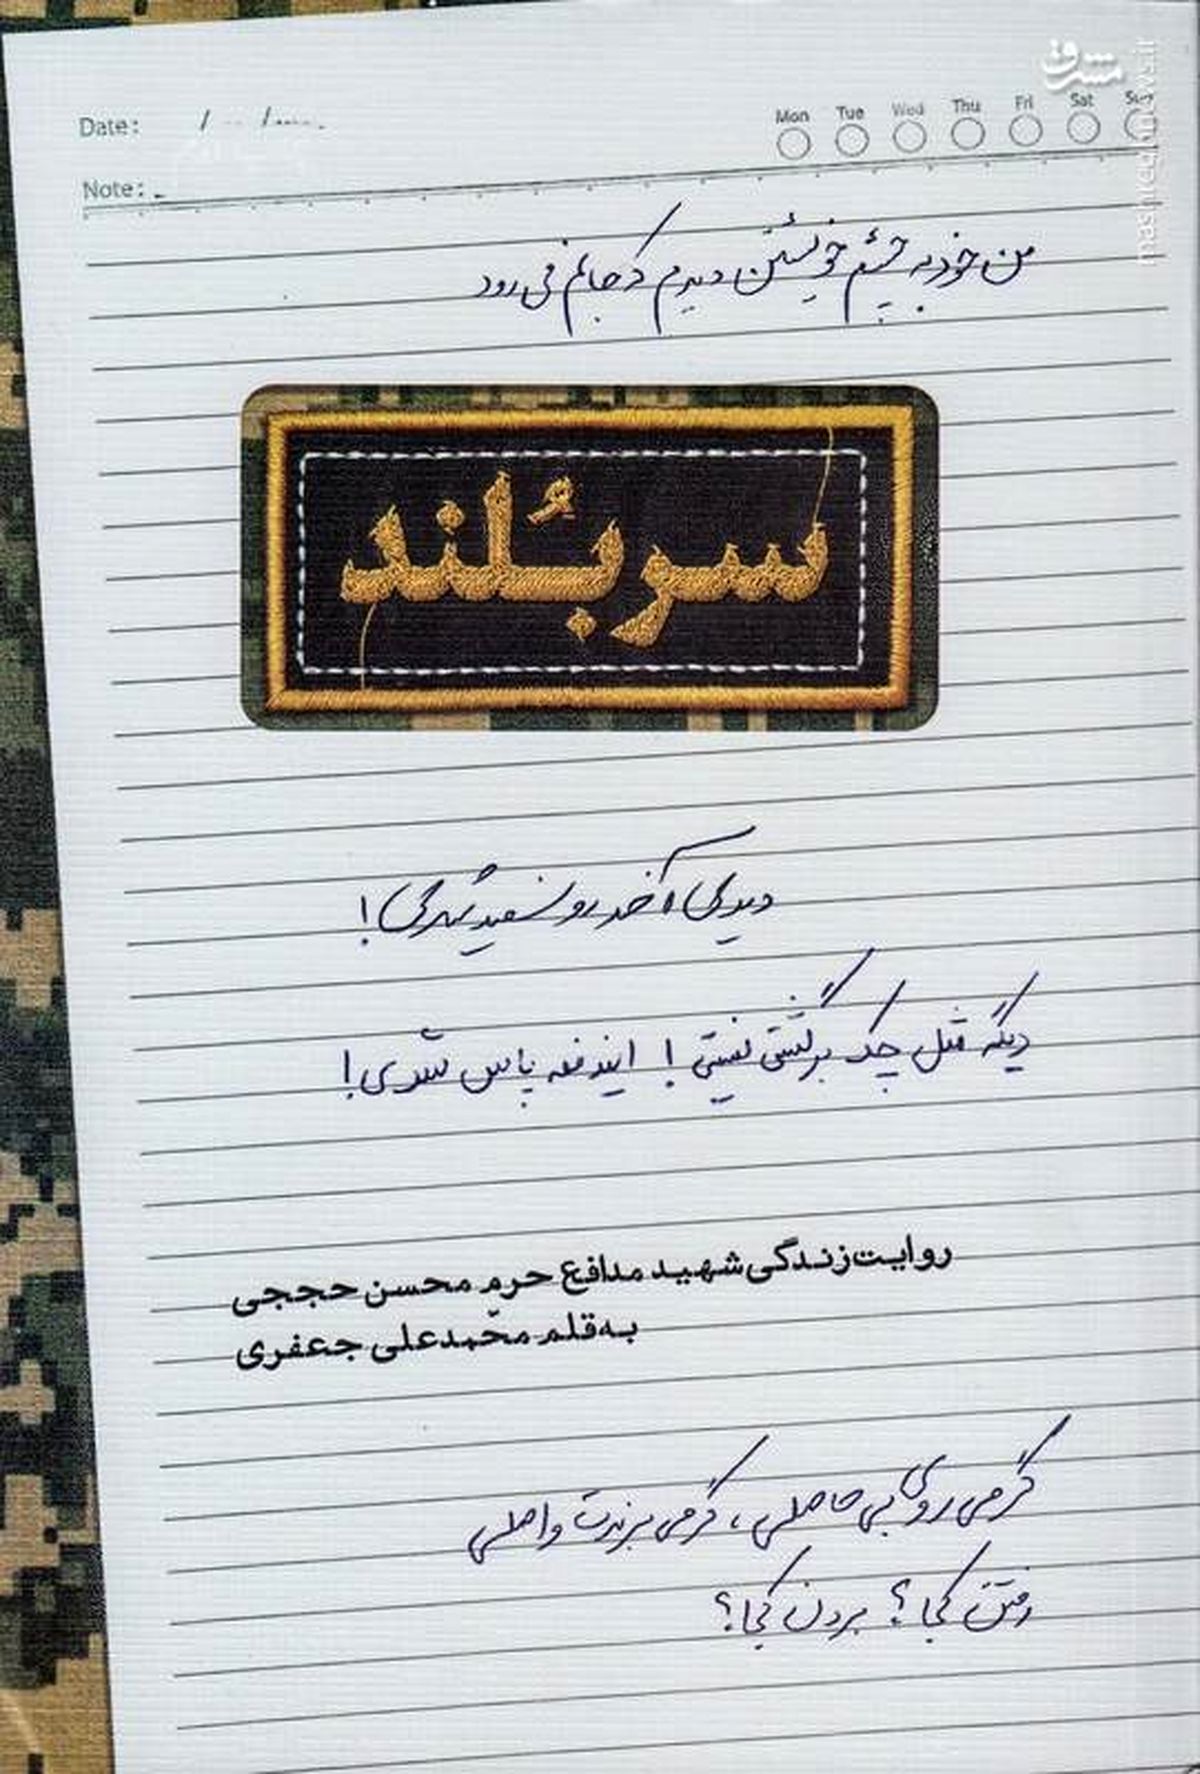 مشرق
mashreghnews.ir
Date: / /
Mon Tue Wed Thu Fri Sat Sun
Note:
من خود به چشم خویشتن دیدم که جانم می‌رود
سربُلند
دیدی آخر رو سفید شدی!
دیگه مثل چک برگشتی نیستی! ایندفعه پاس شدی!
روایت زندگی شهید مدافع حرم محسن حججی
به قلم محمّدعلی جعفری
گر می‌روی بی حاصلی، گر می‌برندت واصلی
رفتن کجا؟ بردن کجا؟